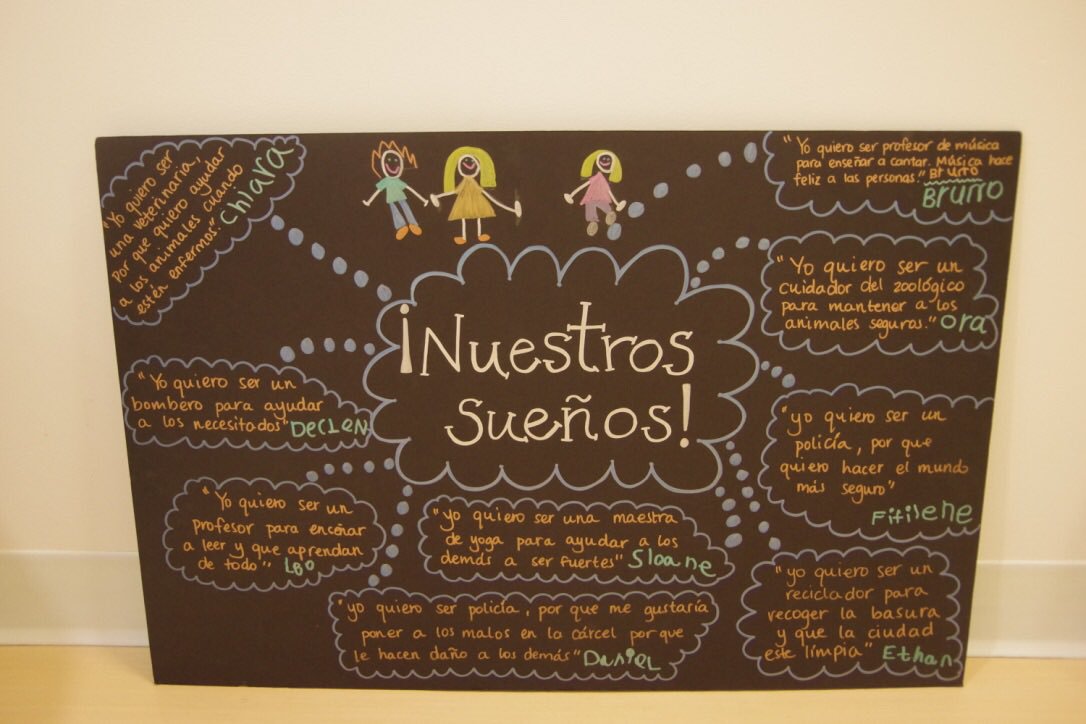 ¡Nuestros
sueños!
"Yo quiero ser
una veterinaria,
Por que quiero ayudar
a los animales cuando
estén enfermos"
Chiara
"Yo quiero ser profesor de música
para enseñar a cantar. Música hace
feliz a las personas." Bruno
Bruno
"Yo quiero ser un
cuidador del zoológico
para mantener a los
animales seguros." Ora
"Yo quiero ser un
bombero para ayudar
a los necesitados" Declan
"yo quiero ser un
policía, por que
quiero hacer el mundo
más seguro"
Fitilene
"Yo quiero ser un
profesor para enceñar
a leer y que aprendan
de todo" Leo
"yo quiero ser una maestra
de yoga para ayudar a los
demás a ser fuertes" Sloane
"yo quiero ser un
reciclador para
recoger la basura
y que la ciudad
este limpia" Ethan
"yo quiero ser policía, por que me gustaría
poner a los malos en la cárcel por que
le hacen daño a los demás" Daniel